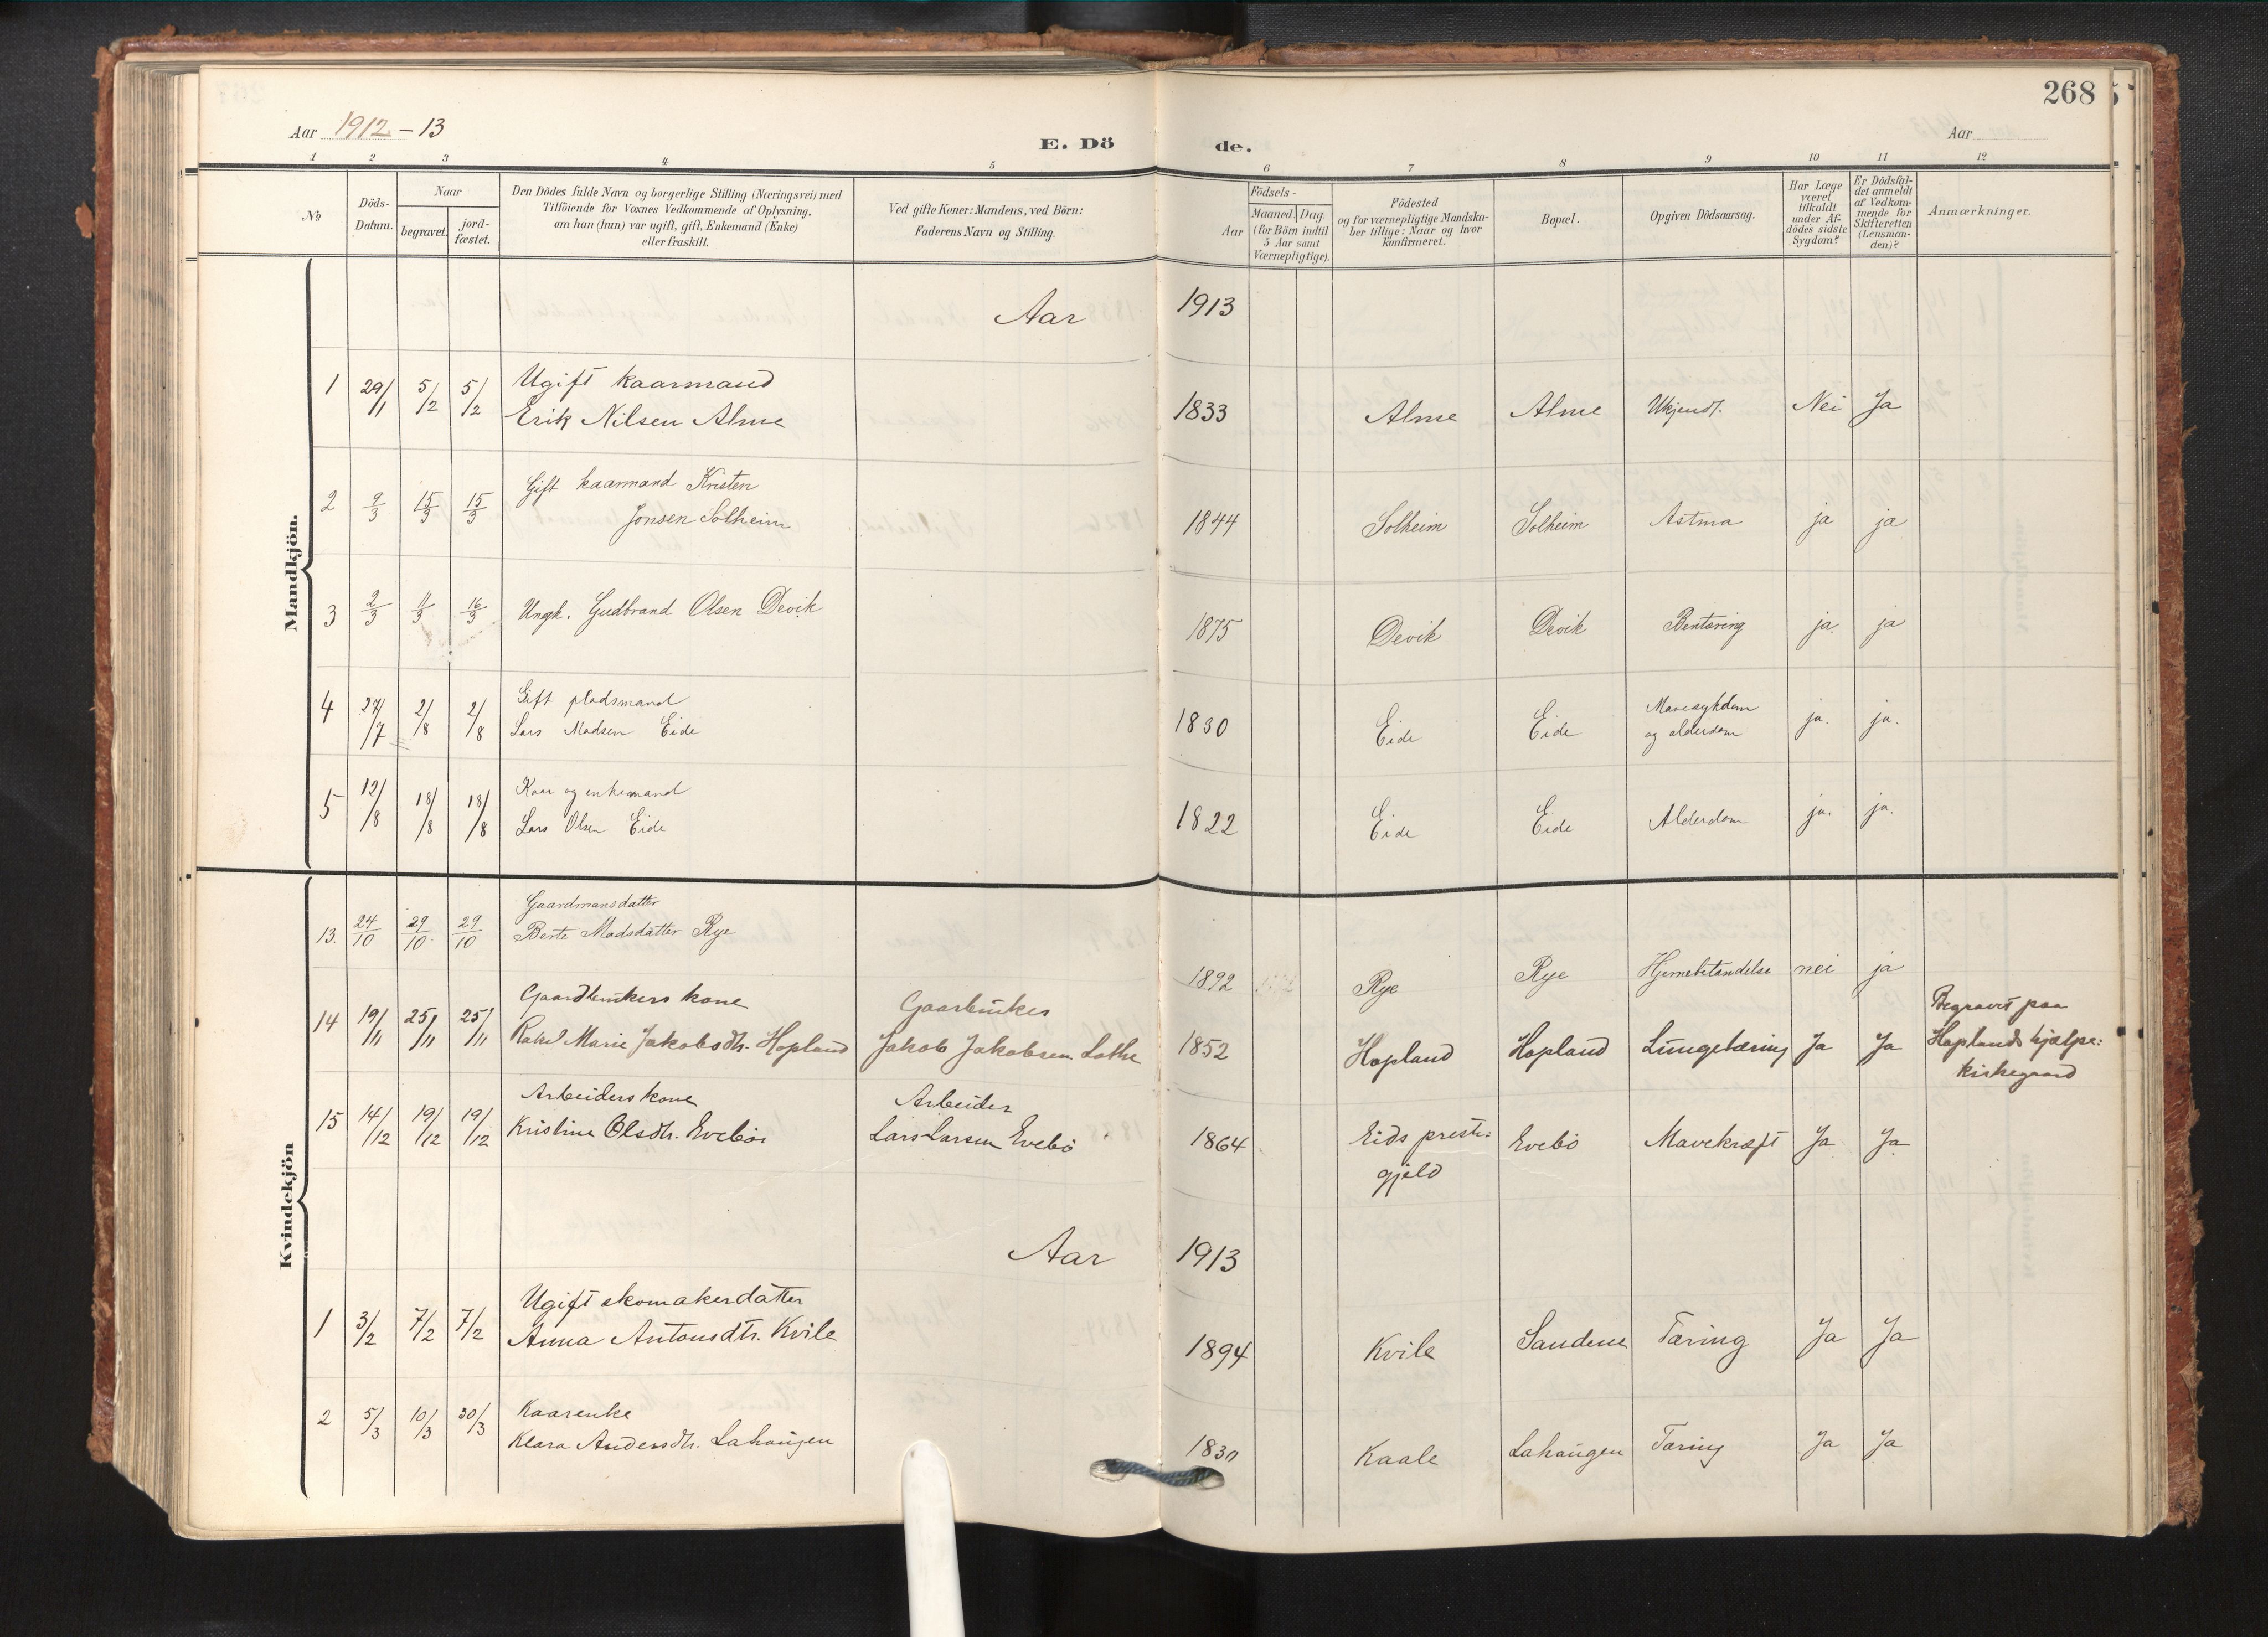 268
Aar 1912 - 13
E. Dö de.
Aar
1 2 3 4 5 6 7 8 9 10 11 12
№
Döds-
Datum.
Naar
begravet.
jord-
fæstet.
Den Dödes fulde Navn og borgerlige Stilling (Næringsvei) med
Tilföiende for Voxnes Vedkommende af Oplysning,
om han (hun) var ugift, gift, Enkemand (Enke)
eller fraskilt.
Ved gifte Koner: Mandens, ved Börn:
Faderens Navn og Stilling.
Födsels-
Aar
Maaned. Dag.
(for Börn indtil
5 Aar samt
Værnepligtige).
Födested
og for værnepligtige Mandska-
ber tillige: Naar og hvor
konfirmeret.
Bopæl.
Opgiven Dödsaarsag.
Har Læge
været
tilkaldt
under Af-
dödes sidste
Sygdom?
Er Dödsfal-
det anmeldt
af Vedkom-
mende for
Skifteretten
(Lensman-
den)?
Anmærkninger.
Mandkjön.
Aar 1913
1 29/1 5/2 5/2 Ugift kaarmand
Erik Nilsen Alme 1833 Alme Alme Ukjendt. Nei Ja
2 9/3 15/3 15/3 Gift kaarmand Kristen
Jonsen Solheim 1844 Solheim Solheim Astma ja ja
3 2/3 11/3 16/3 Ungk. Gudbrand Olsen Devik 1875 Devik Devik Bentæring ja ja
4 27/7 2/8 2/8 Gift pladsmand
Lars Madsen Eide 1830 Eide Eide Mavesykdom
og alderdom ja. ja.
5 12/8 18/8 18/8 Kaar og enkemand
Lars Olsen Eide 1822 Eide Eide Alderdom ja. ja.
Kvindekjön
13. 24/10 29/10 29/10 Gaardmansdatter
Berte Madsdatter Rye 1892 Rye Rye Hjernebetændelse nei ja
14 19/11 25/11 25/11 Gaardbrukers kone
Rakel Marie Jakobsdtr. Hopland
Gaarbruker
Jakob Jakobsen Lothe 1852 Hopland Hopland Lungetæring Ja Ja
Begravet paa
Hoplands hjælpe:
kirkegaard
15 14/12 19/12 19/12 Arbeiders kone
Kristine Olsdtr. Evebö
Arbeider
Lars Larsen Evebö 1864 Eids preste:
gjeld Evebö Mavekræft Ja Ja
Aar 1913
1 3/2 7/2 7/2 Ugift skomakerdatter
Anna Antonsdtr. Kvile 1894 Kvile Sandene Tæring Ja Ja
2 5/3 10/3 30/3 Kaarenke
Klara Andersdtr. Lahaugen 1830 Kaale Lahaugen Tæring Ja Ja